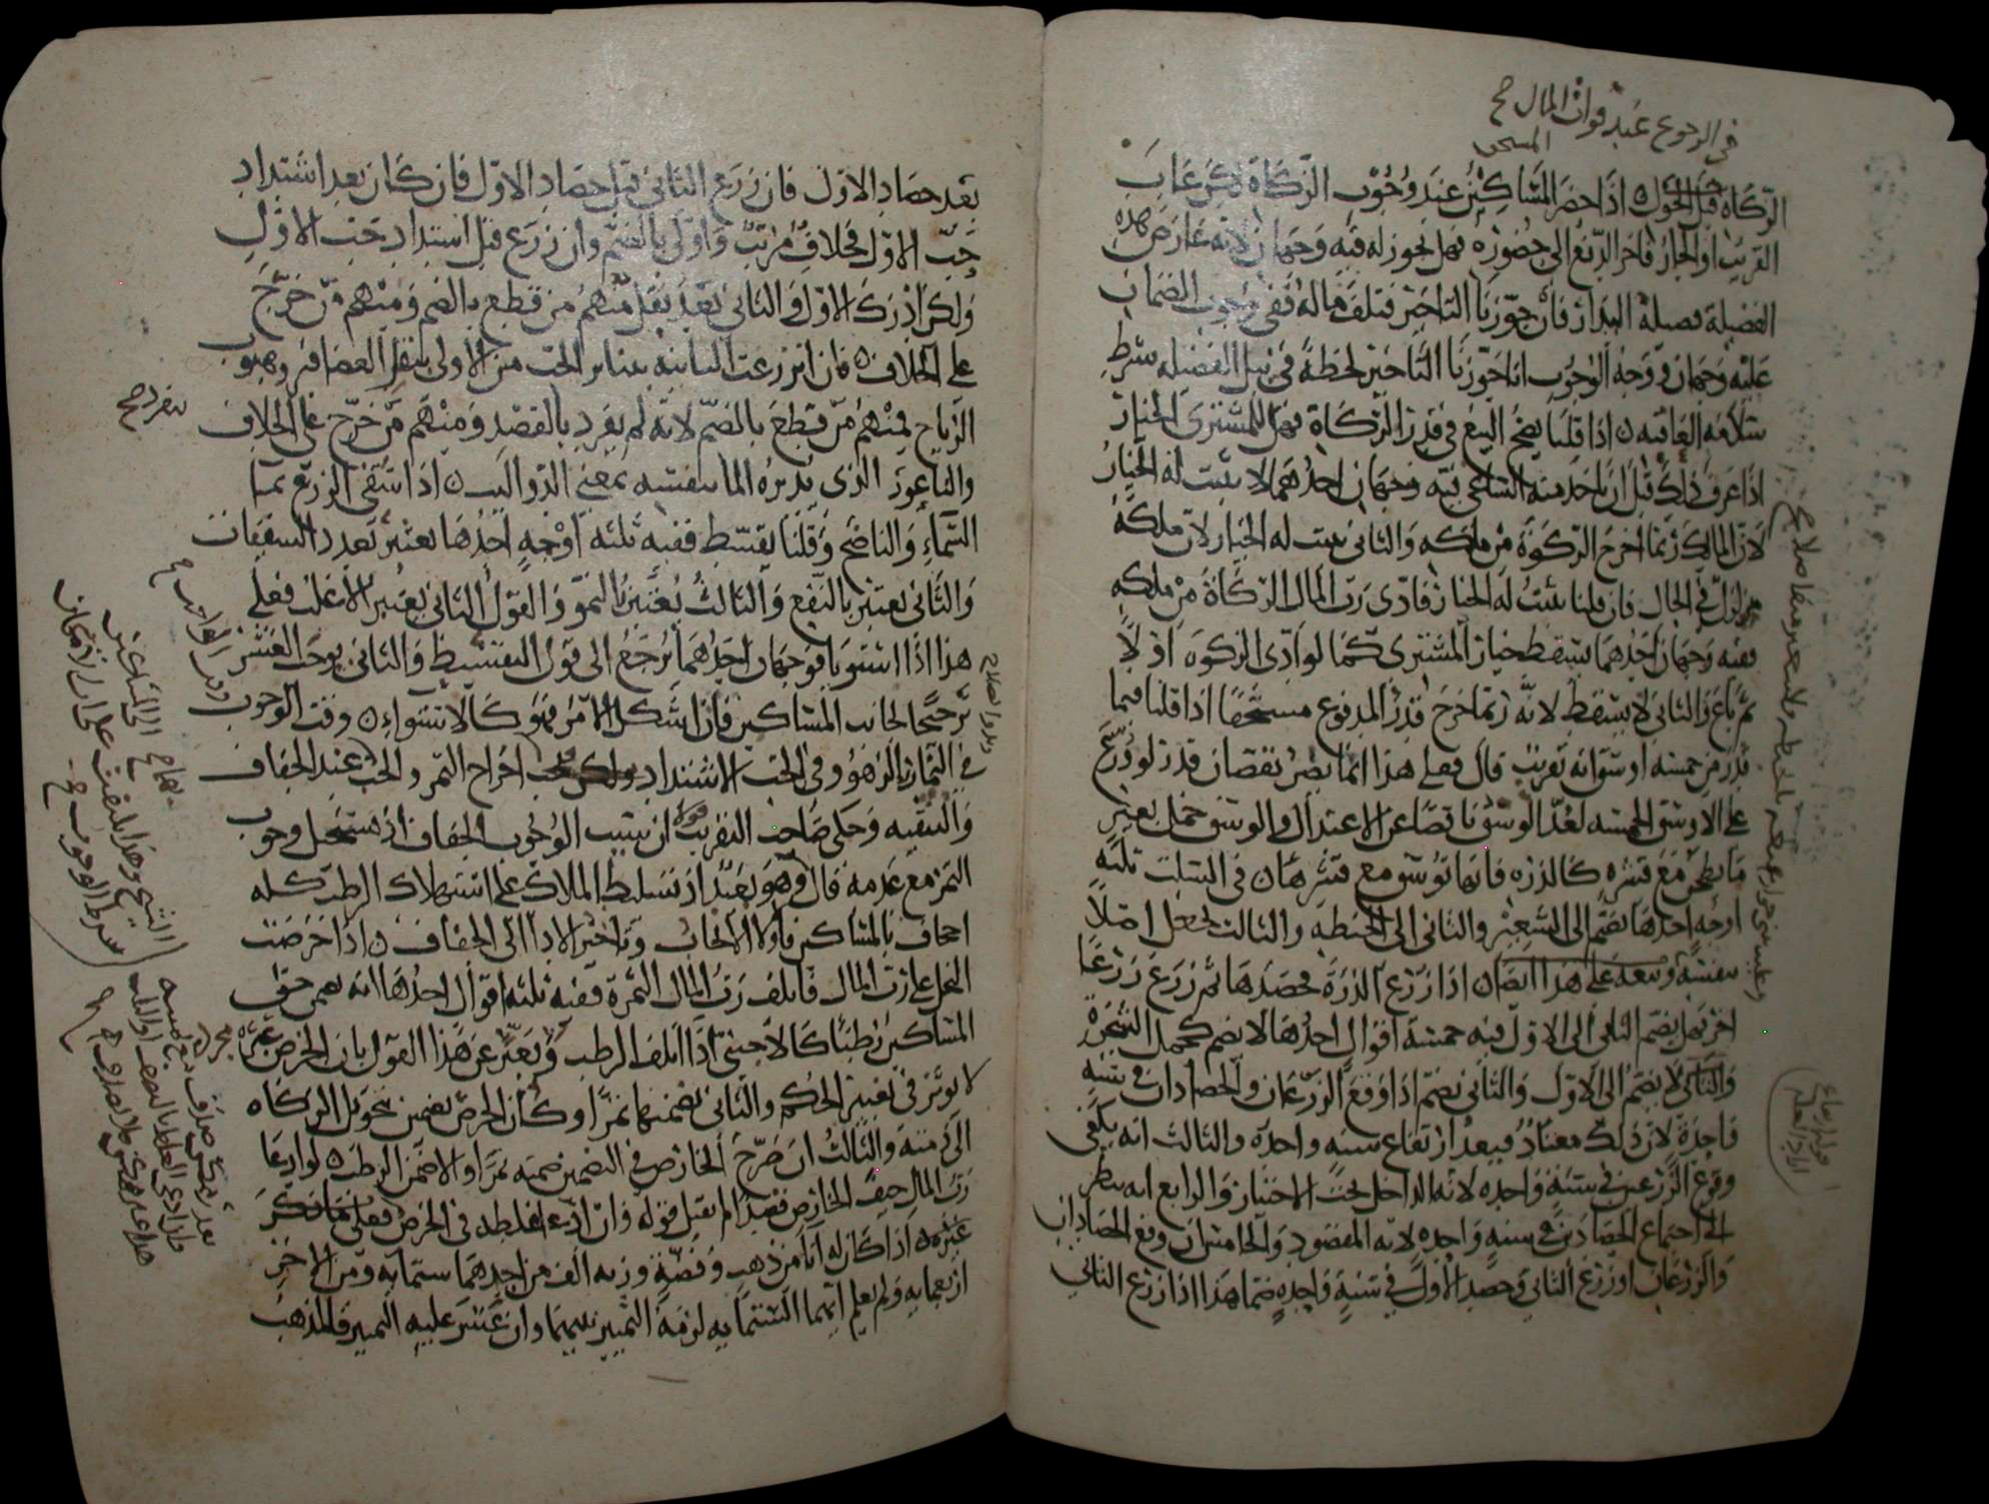 في الرجوع عند فوات المال صح
المستحق
الزكاة قبل الحول ه اذا حضر المساكين عند وجوب الزكاة لكن غاب
القريب او الجار فاخر الدفع الى حضوره فهل يجوز له فيه وجهان لانه عارض هذه
الفضيلة فضيلة البدار فان جوزنا التاخير فتلف ماله ففي وجوب الضمان
عليه وجهان ووجه الوجوب انا جوزنا التاخير لحظة في نيل الفضيله بشرط
سلامه العاقبه ه اذا قلنا يصح البيع في قدر الزكاة فهل للمشتري الخيار
اذا عرف ذلك قبل ان ياخذ منه الساعي فيه وجهان احدهما لا يثبت له الخيار
لان المالك ربما اخرج الزكوة من ملكه والثاني يثبت له الخيار لان ملكه
متزلزل في الحال فان قلنا يثبت له الخيار فادى رب المال الزكاة من ملكه
ففيه وجهان احدهما يسقط خيار المشتري كما لو ادى الزكوة اولا
ثم باع والثاني لا يسقط لانه ربما خرج قدر المدفوع مستحقا اذا قلنا فيما
قدر من خمسه اوسق انه تقريب قال فعلى هذا انما يضر نقصان قدر لو وزع
على الاوسق الخمسه لعد الوسق ناقصا عن الاعتدال والوسق حمل بعير
ما يطحن مع قشره كالذره فانها توسق مع قشرها ه في السلت ثلثه
اوجه احدها يضم الى الشعير والثاني الى الحنطه والثالث يجعل اصلا
بنفسه اذا زرع الذرة فحصدها ثم زرع زرعا
اخر فهل يضم الثاني الى الاول فيه خمسة اقوال احدها لا يضم كحمل الشجرة
والثاني لا يضم الى الاول والثاني يضم اذا وقع الزرعان والحصادان في سنه
واحدة لان ذلك معتاد فيبعد ارتفاع سنه واحدة والثالث انه يكفي
وقوع الزرعين في سنة واحده لانه الداخل تحت الاختيار والرابع انه ينظر
الى اجتماع الحصادين في سنه واحده لانه المقصود والخامس ان وقع الحصادان
والزرعان او زرع الثاني وحصد الاول في سنة واحده ضما هذا اذا زرع الثاني
بعد حصاد الاول فان زرع الثاني قبل حصاد الاول فان كان بعد اشتداد
حب الاول فخلاف مرتب واولى بالضم وان زرع قبل اشتداد حب الاول
ولكن ادرك الاول والثاني بعد بقل فمنهم من قطع بالضم ومنهم من خرج
على الخلاف ه فان انزرعت الثانيه بتناثر الحب من الاولى بنقر العصافير وهبوب
الرياح فمنهم من قطع بالضم لانه لم يفرد بالقصد ومنهم من خرج على الخلاف
والناعور الذي يديره الما بنفسه بمعنى الدواليب ه اذا سقى الزرع بما
السماء والناضح وقلنا يقسط ففيه ثلثه اوجه احدها يعتبر بعدد السقيات
والثاني يعتبر بالنفع والثالث يعتبر بالنمو والقول الثاني يعتبر الاغلب فعلى
هذا اذا استويا فوجهان احدهما يرجع الى قول التقسيط والثاني يوجب العشر
ترجيحا لجانب المساكين فان اشكل الامر فهو كالاستواء ه وقت الوجوب
في الثمار الزهو وفي الحب الاشتداد اخراج التمر والحب عند الجفاف
والتنقيه وحكى صاحب التقريب قولا ان سبب الوجوب الجفاف اذ يستحيل وجوب
التمر مع عدمه قال وهو بعيد اذ تسليط الملاك على استهلاك الرطب كله
اجحاف بالمساكين فاولا الايجاب وتاخير الادا الى الجفاف ه اذا خرصنا
النخل على رب المال فاتلف رب المال الثمرة ففيه ثلثه اقوال احدها انه يضمن حق
المساكين رطبا كالاجنبي اذا اتلف الرطب ويعبر عن هذا القول بان الخرص عبرة
لا يؤثر في تغيير الحكم والثاني تضمنهما تمرا وكأن الخرص تضمين بتحويل الزكاة
الى ذمته والثالث ان صرح الخارص في التضمين ضمنه تمرا والا ضمن الرطب ه لو ادعا
رب المال حيف الخارص فقصدا لم يقبل قوله وان ادعى غلطه في الخرص فعلى ما ذكر
غيره ه اذا كان له انا من ذهب وفضة وزنه الف من احدهما ستمايه ومن الاخر
اربعمايه ولم يعلم ايهما الستمايه لزمه التمييز بينهما وان عسر عليه التمييز فالمذهب